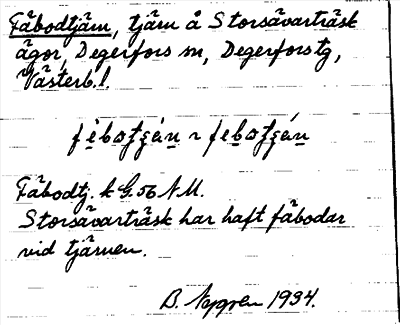 Fäbodtjärn, tjärn å Storsävarträsk
ägor, Degerfors sn, Degerfors tg,
Västerb.l.
Fäbodtj. k G. 56 N.M.
Storsävarträsk har haft fäbodar
vid tjärnen.
B. Nygren 1934.